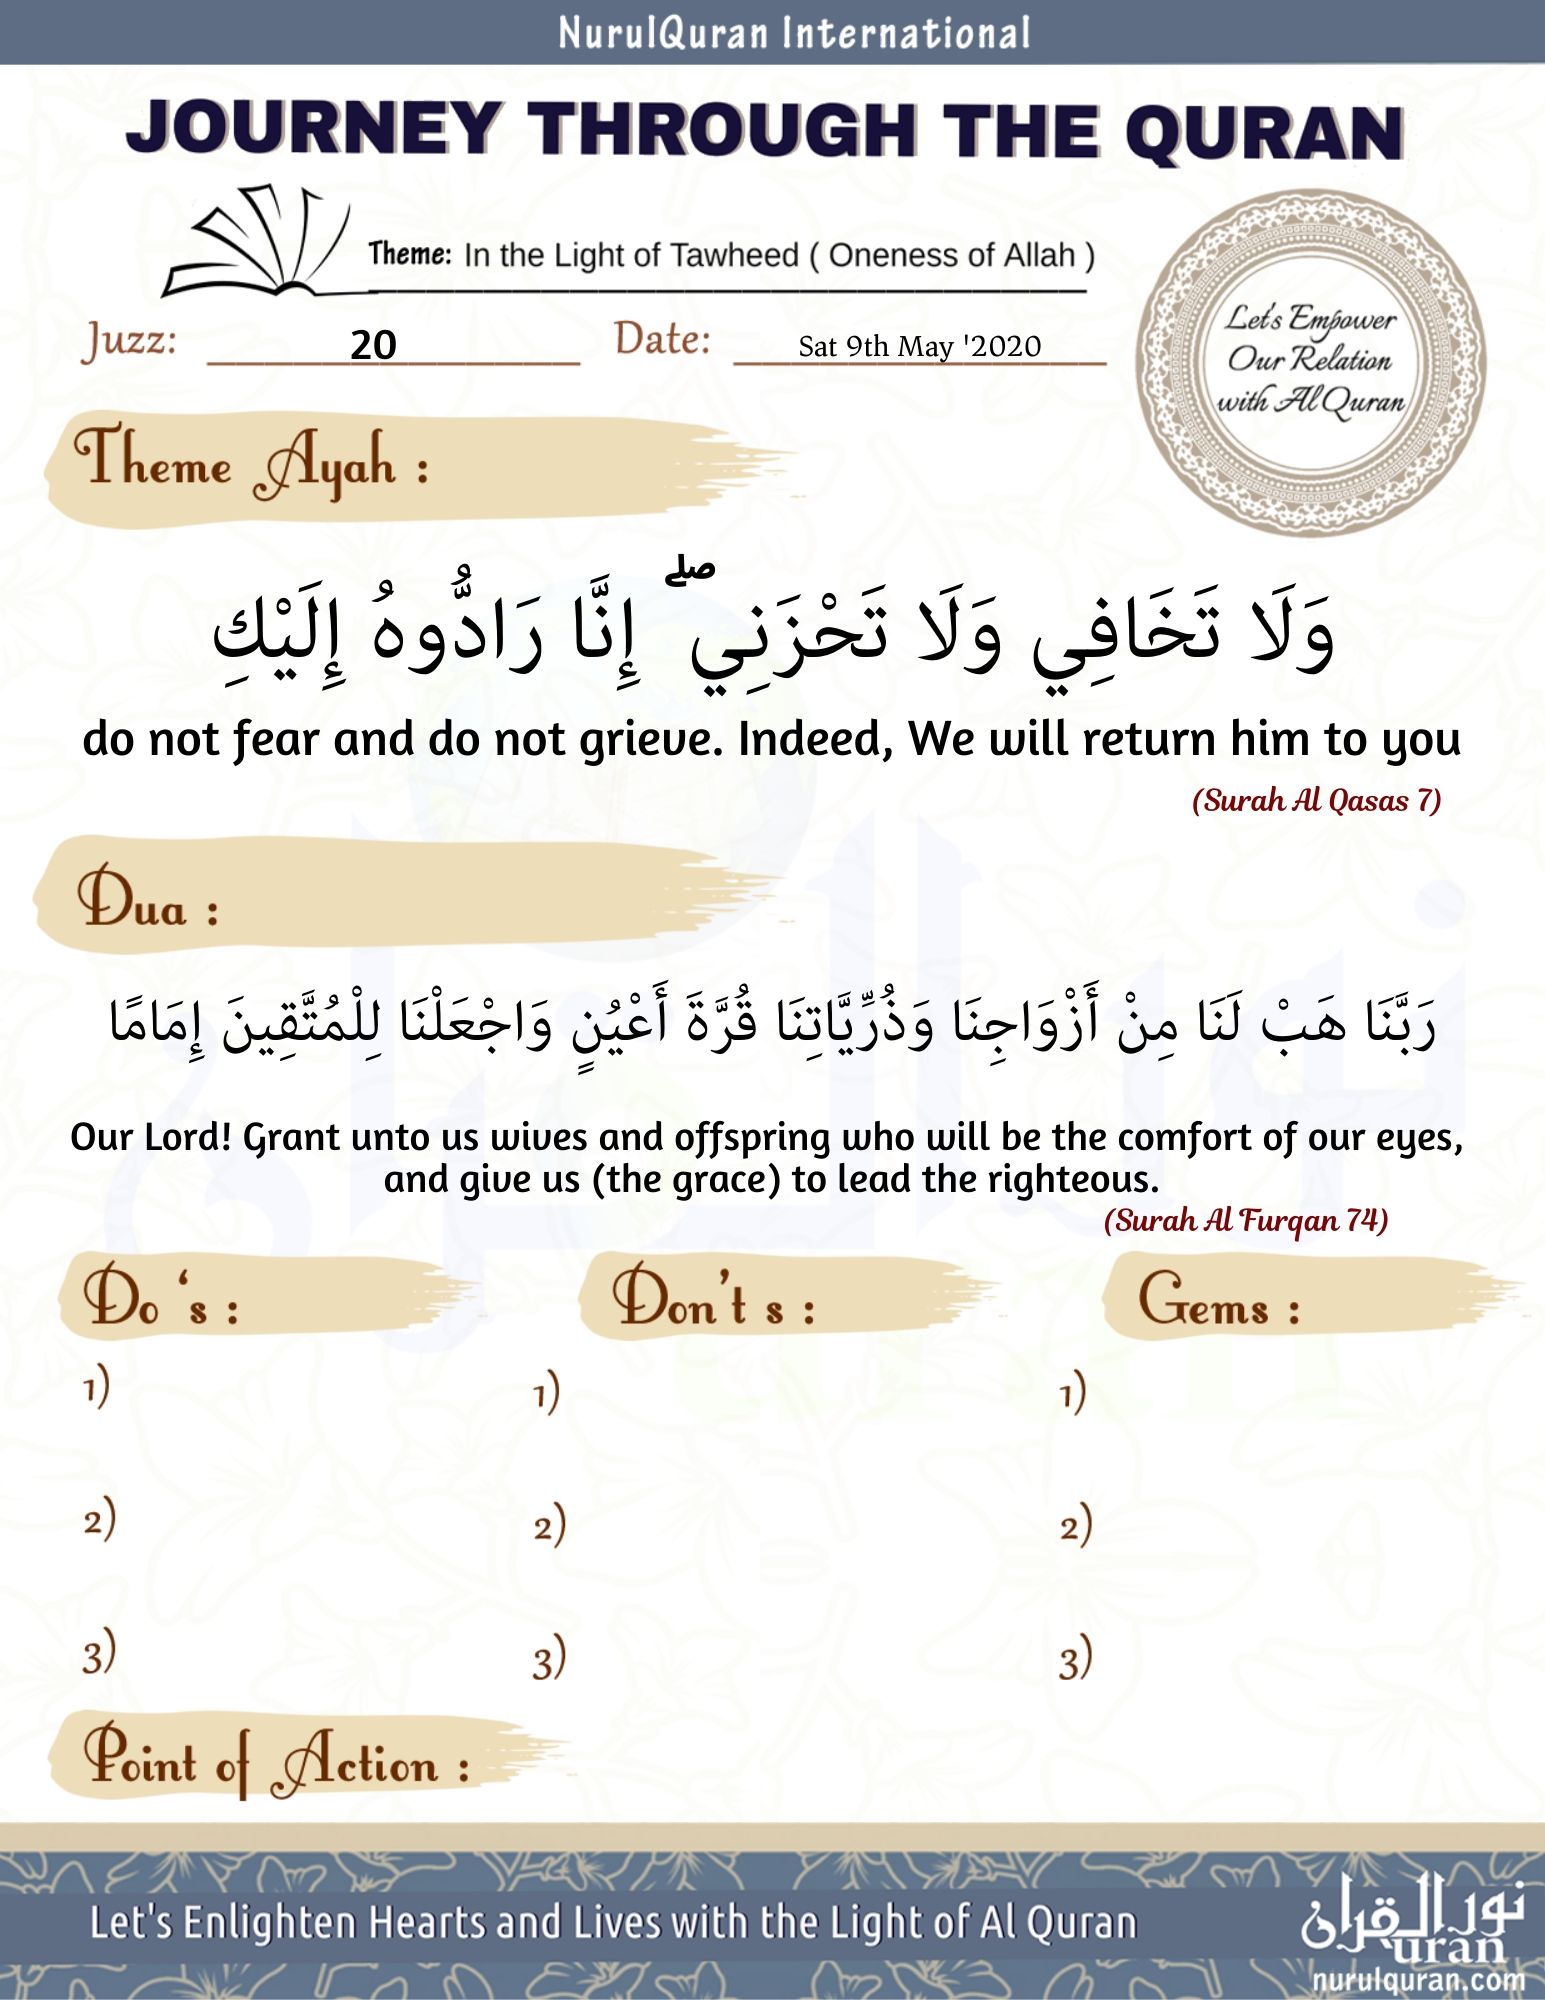 NurulQuran International
JOURNEY THROUGH THE QURAN
Theme: In the Light of Tawheed ( Oneness of Allah )
Juzz: 20 Date: Sat 9th May '2020
Let's Empower
Our Relation
with Al Quran
Theme Ayah :
وَلَا تَخَافِي وَلَا تَحْزَنِي ۖ إِنَّا رَادُّوهُ إِلَيْكِ
do not fear and do not grieve. Indeed, We will return him to you
(Surah Al Qasas 7)
Dua :
رَبَّنَا هَبْ لَنَا مِنْ أَزْوَاجِنَا وَذُرِّيَّاتِنَا قُرَّةَ أَعْيُنٍ وَاجْعَلْنَا لِلْمُتَّقِينَ إِمَامًا
Our Lord! Grant unto us wives and offspring who will be the comfort of our eyes,
and give us (the grace) to lead the righteous.
(Surah Al Furqan 74)
Do 's : Don't s : Gems :
1) 1) 1)
2) 2) 2)
3) 3) 3)
Point of Action :
Let's Enlighten Hearts and Lives with the Light of Al Quran
نور القرآن
uran
nurulquran.com